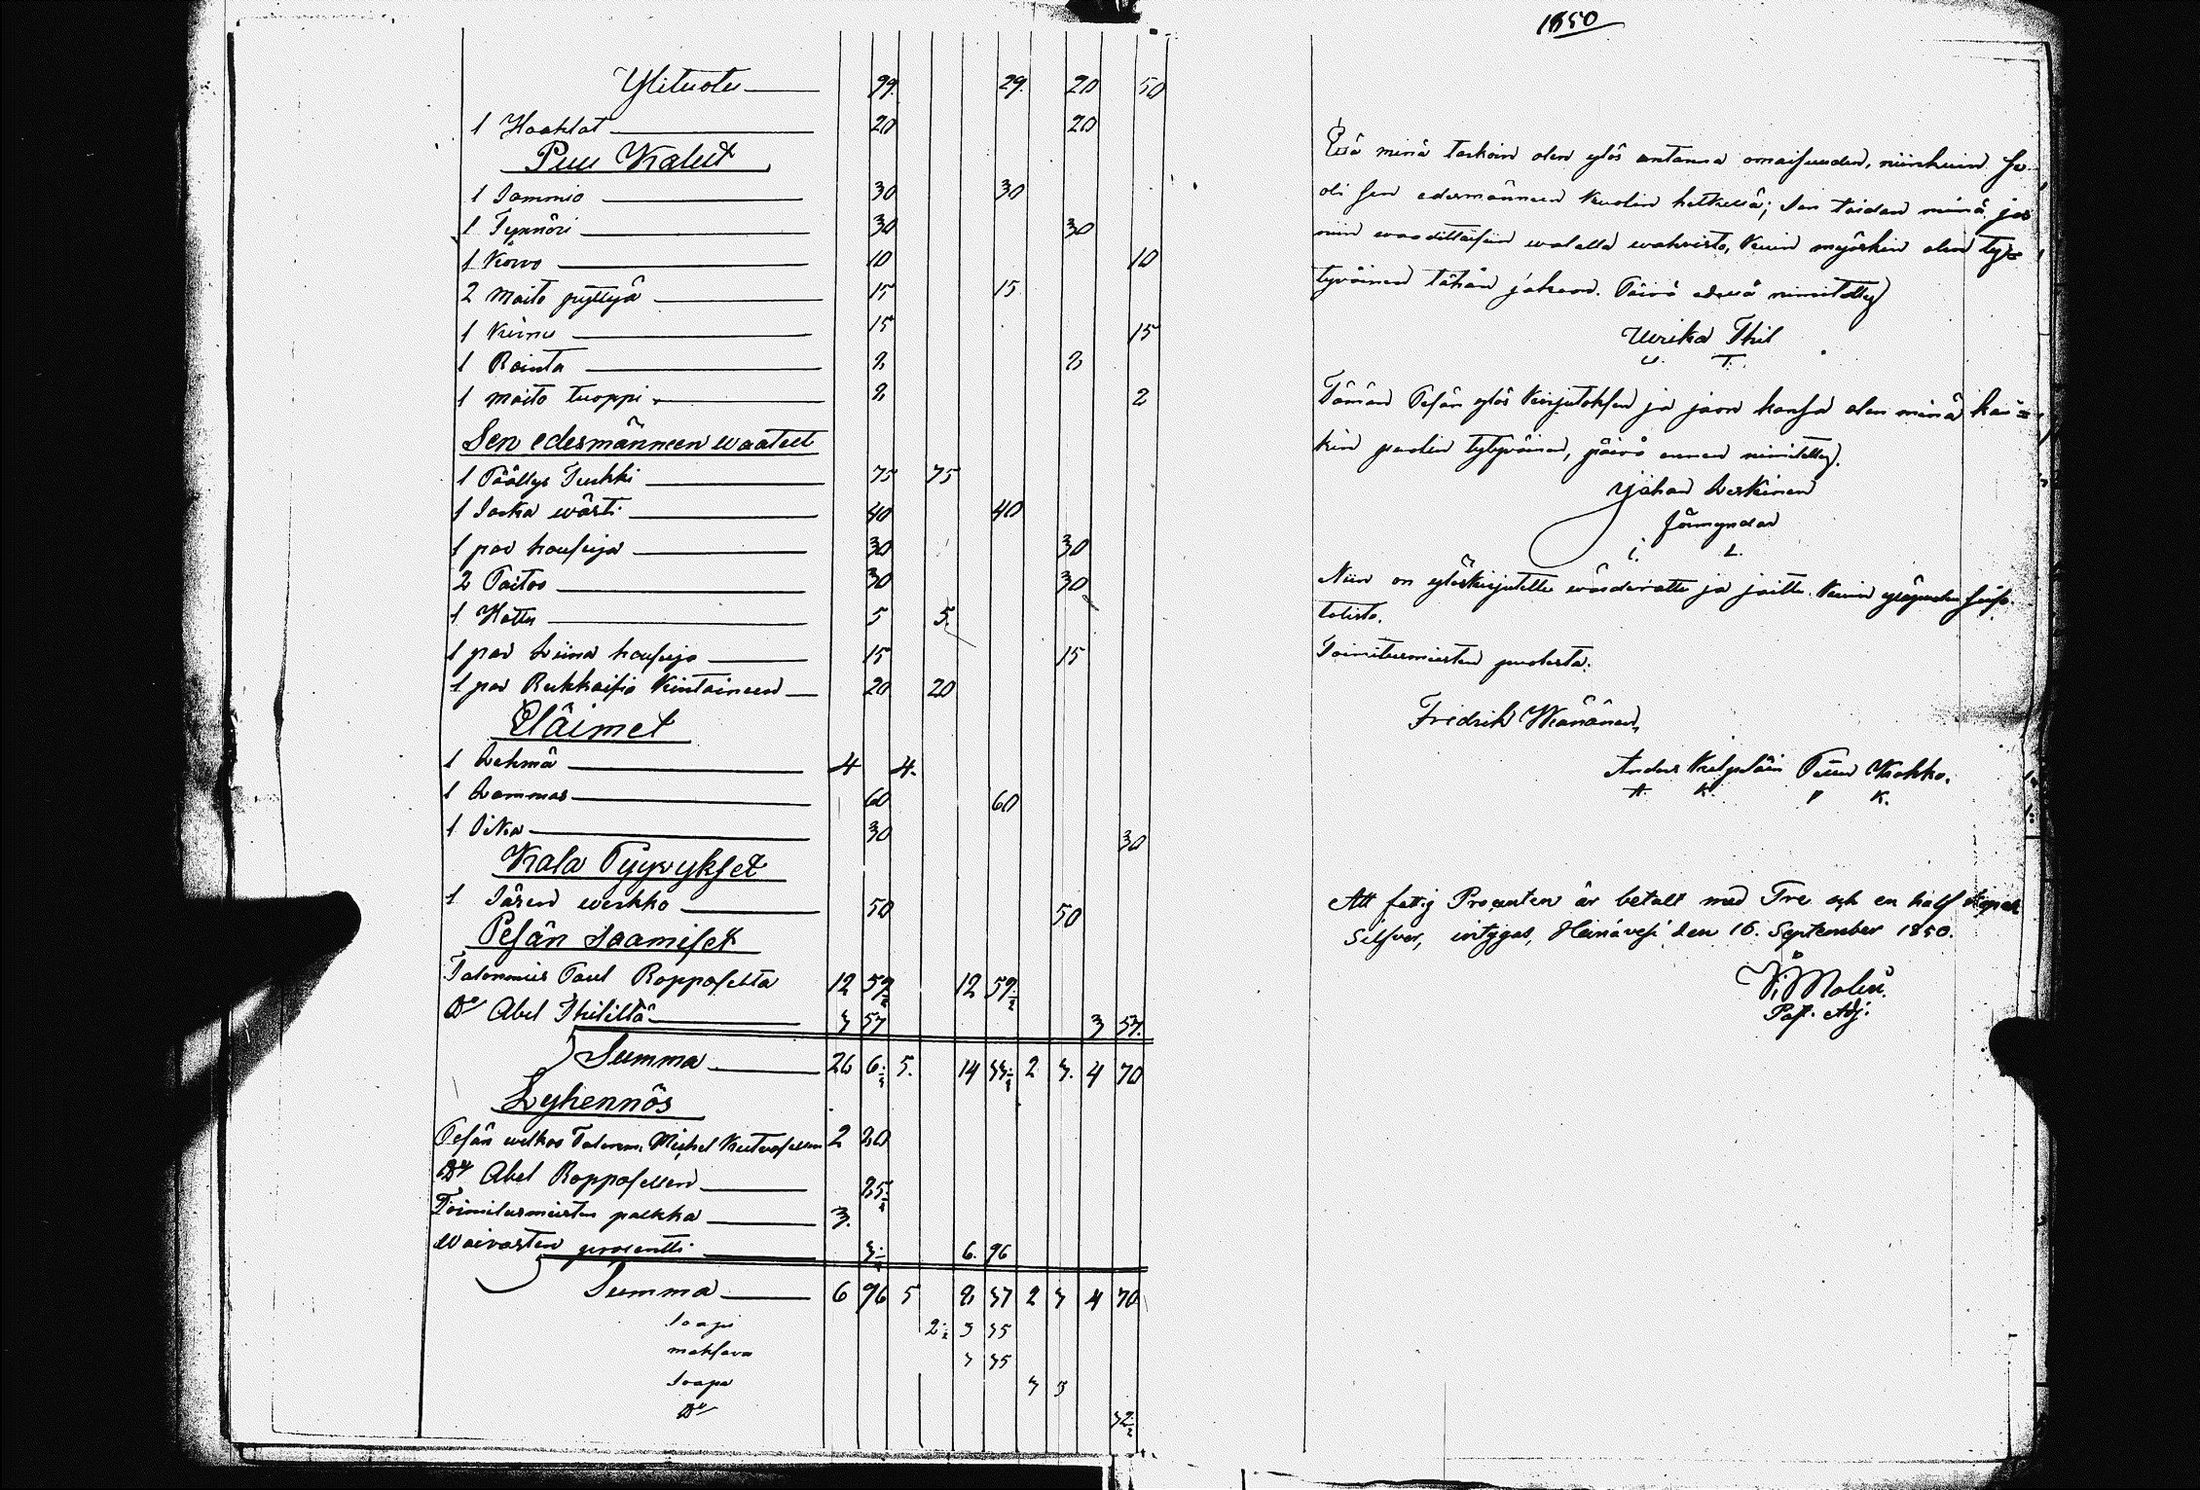 1850
Ylituotu 99. 29. 20 50
1 Haahlat 20 20
Puu Kalut
1 Sammio 30 30
1 Tynnöri 30 30
1 Korvo 10 10
2 maito pyttyä 15 15
1 Kirnu 15 15
1 Rainta 2 2
1 maito tuoppi 2 2
Sen edesmänneen waatteet
1 Päällys Turkki 75 75
1 Sarka wästi 40 40
1 par housuja 30 30
2 Paitoa 30 30
1 Hattu 5 5.
1 par Liina housuja 15 15
1 par Rukkaisia Kintaineen 20 20
Eläimet
1 Lehmä 4 4.
1 Lammas 60 60
1 Sika 30 30
Kala Pyyvykset
1 Sären werkko 50 50
Pesän Saamiset
Talonmies Paul Roppo 12 12
Do Abel Thililtä 3 57 3 57.
Summa 26 6 5. 14 2 3. 4 70
Lyhennös
Pesän welkoo Talonm. Michel 2 20
Do Abel Roppo
Toimitusmiesten palkka 3.
Waivasten prosentti 6. 96
Summa 6 96 5 2 37 2 3 4 70
Saapi 3 35
maksava 3 35
Saapi 3 3
Do
Että minä tarkoin olen ylös antanna omaisuuden, niinkuin se
oli sen edesmänneen kuolin hetkellä; sen taidan minä jos
niin waadittaisiin walalla wahvista, kuin myöskin olen tyy-
tyväinen tähän jakoon. Päivä edellä nimitetty
Ulrika Thil
U. T.
Tämän Pesän ylös kirjutoksen ja jaon kansa olen minä kai-
kin puolin tytyväinen, päivä ennen nimitetty.
Johan Leskinen
förmyndar
i. L.
Niin on ylöskirjutettu wärderattu ja jaittu kuin
Toimitusmiesten puolesta.
Fredrik Wänänen,
Anders Kulpuläin Petter Kokko.
A. K. P K.
Att fattig Procenten är betalt med Tre och en half kopek
Silfver, intygas, Heinävesi den 16. September 1850.
Molin.
Past. Adj.